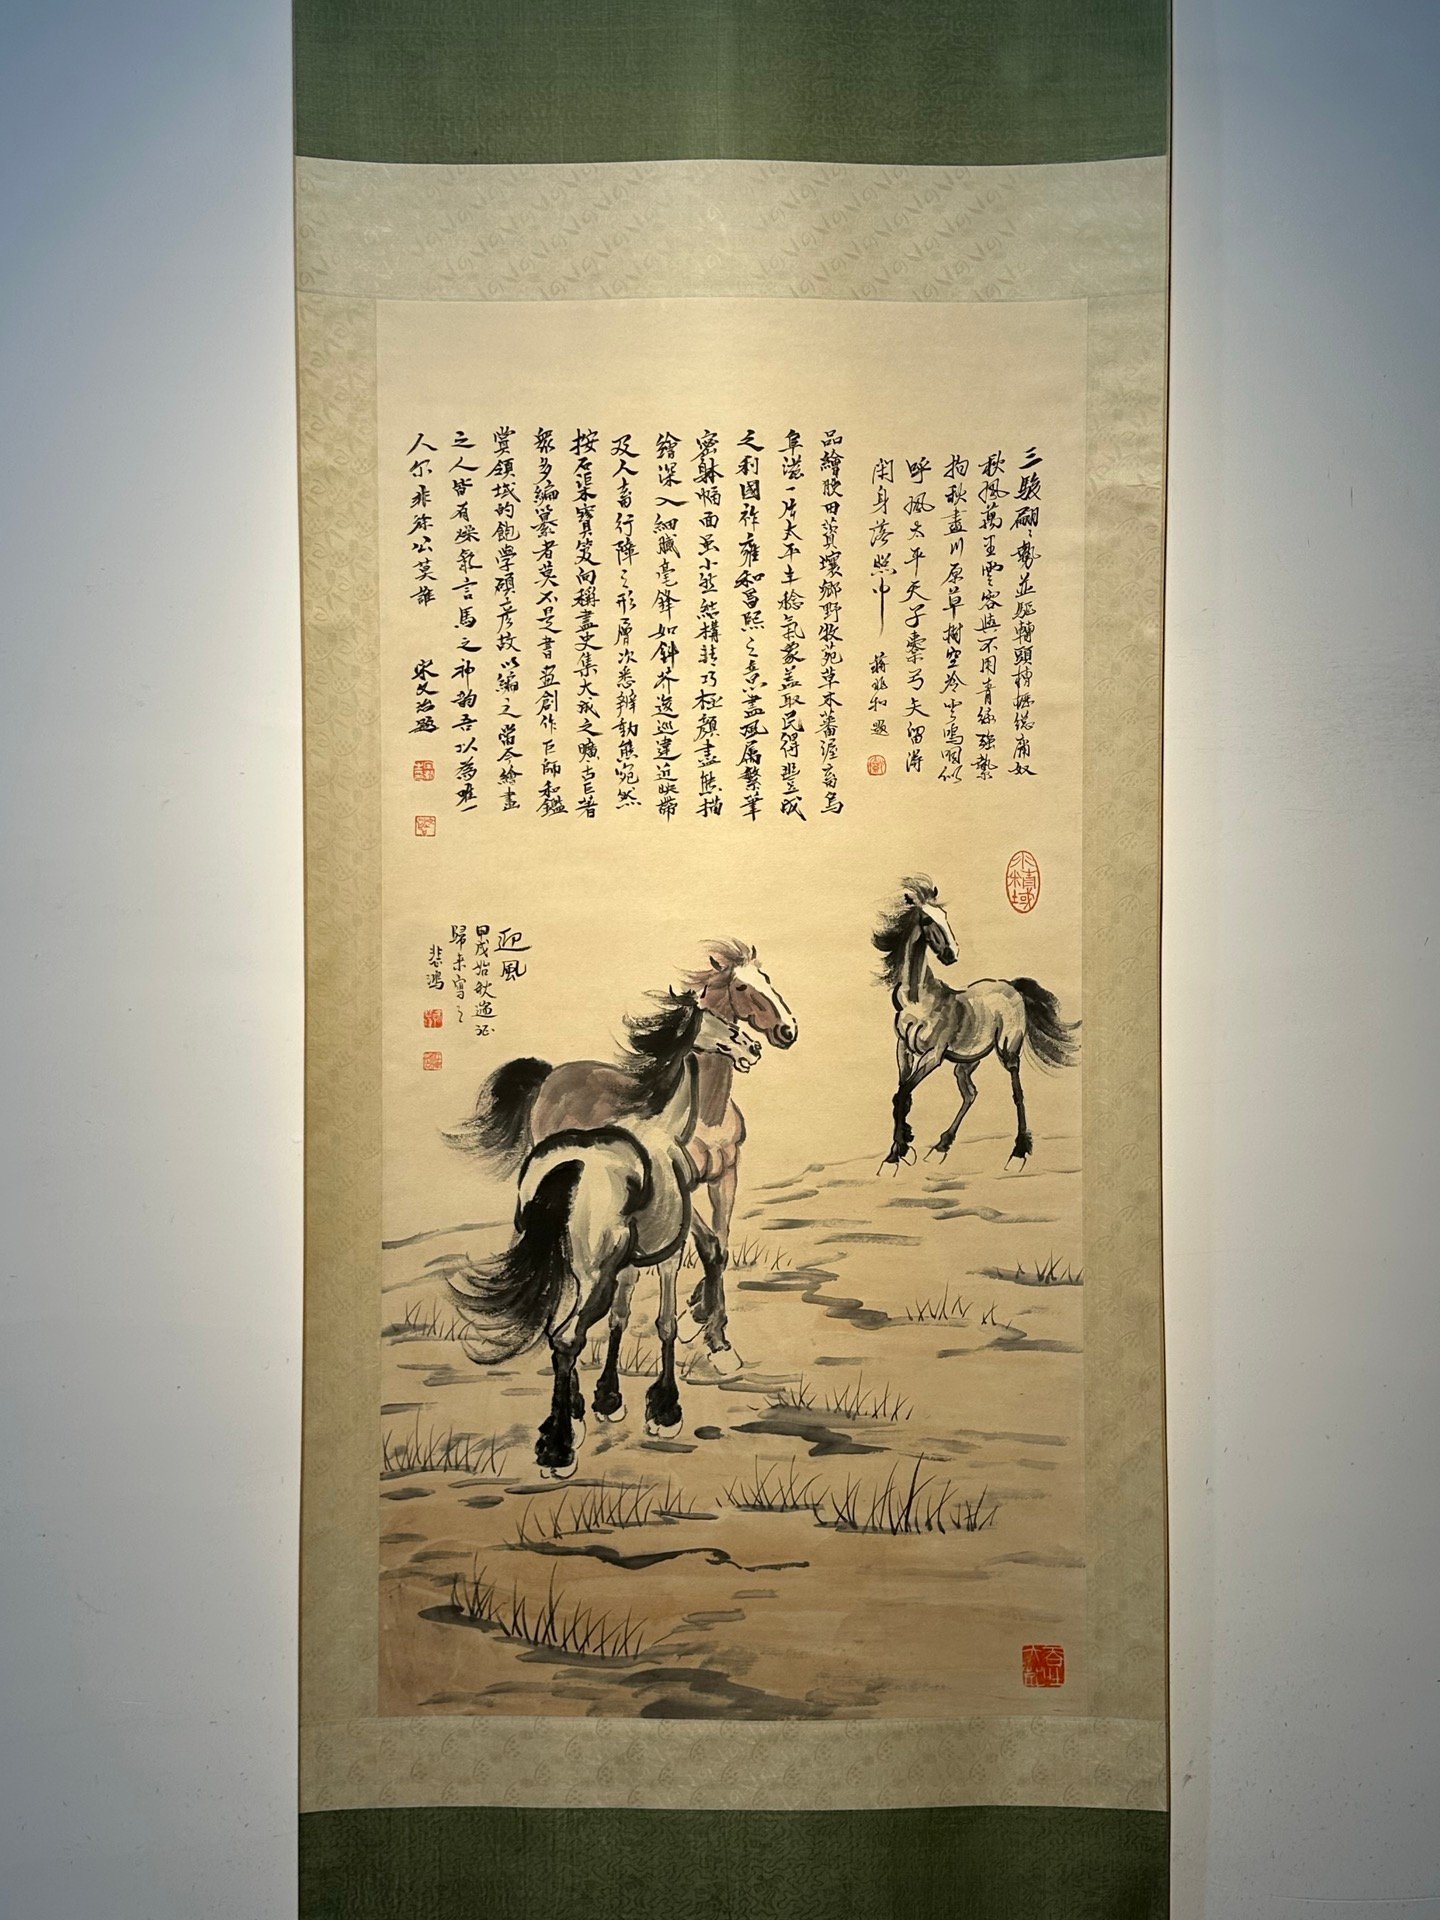 三駿翩翩勢並驅轉頭
秋風萬里雲容與不用青絲強縶
拘秋盡川原草樹空
呼風太平天子櫜弓矢留得
閑身落照中 蔣兆和題
品繪腴田質壤鄉野牧苑草木蕃渥畜鳥
阜滋一片太平豐稔氣象蓋取民得豐成
之利國祚雍和昌熙之意盡風屬繁筆
密躰幅面虽小然結構精巧極顏盡態描
繪深入細膩毫鋒如針芥逡巡建近映帶
及人畜行陣之形層次悉辨動態宛然
按石渠寶笈向稱畫史集大成之曠古巨著
衆多編纂者莫不是書畫創作巨師和鑑
賞領域的飽學碩彥故以編之當今繪畫
之人皆有燥氣言馬之神韵吾以為唯一
人尔非徐公莫誰 宋文治題
迎風
甲戌始秋
歸來寫之
悲鴻